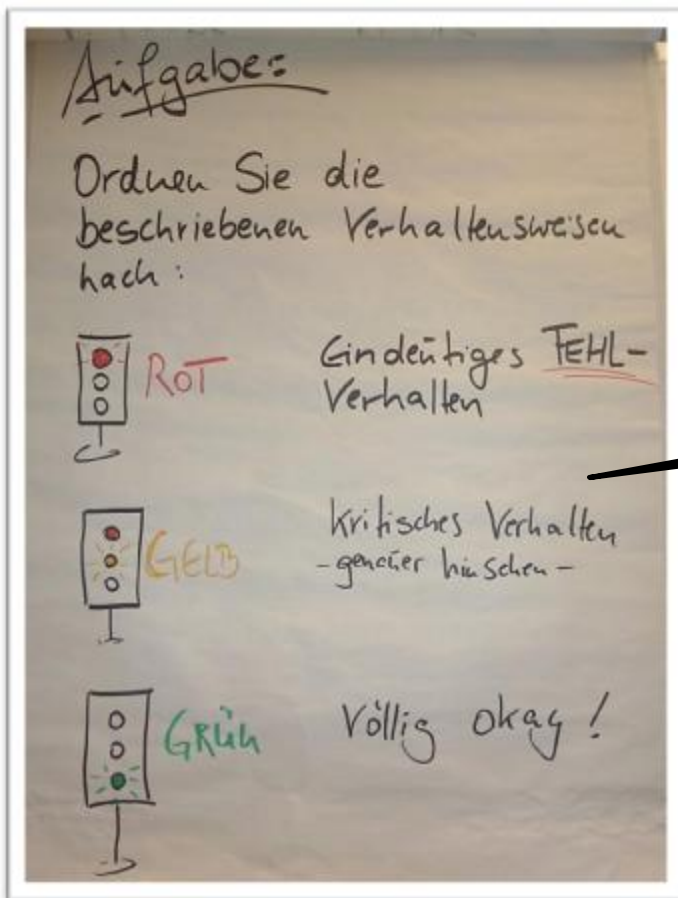 Aufgabe:
Ordnen Sie die
beschriebenen Verhaltensweisen
nach:
ROT Eindeutiges FEHL-
Verhalten
GELB kritisches Verhalten
- genauer hinsehen -
GRÜN Völlig okay!